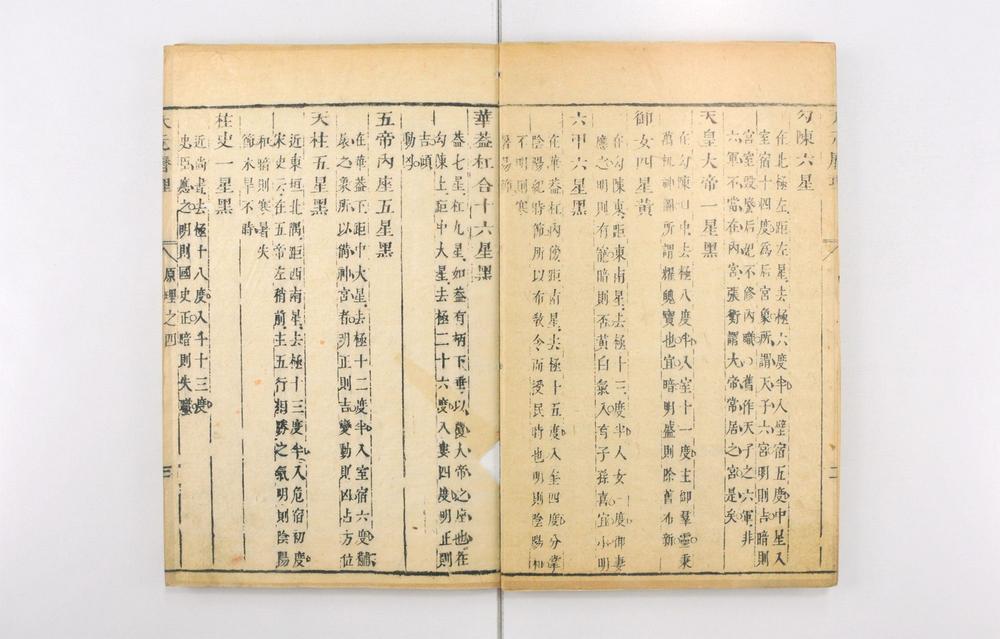 勾陳六星
在北極左距左星去極六度半入壁宿五度中星入
室宿十四度為后宮象所謂天子六宮明則吉暗則
宮室毀鑿后妃不修內職○舊作天子之六軍非
六軍不當在內宮張衡謂大帝常居之宮是矣
天皇大帝一星黑
在勾陳口中去極八度半入室十一度主御羣靈秉
萬機神圖所謂耀魄寶也宜暗明盛則除舊布新
御女四星黃
在勾陳東距東南星去極十三度半入女一度御妻
應之明則有寵暗則否黃白氣入有子孫喜宜小明
六甲六星黑
在華葢杠內傍距南星去極十五度入奎四度分掌
陰陽紀時節所以布敎令而受民時也明則陰陽和
不明則寒
暑易節
華葢杠合十六星黑
葢七星杠九星如葢有柄下垂以覆大帝之座也在
勾陳上距中大星去極二十六度入婁四度明正則
吉傾
動凶
五帝內座五星黑
在華葢下距中大星去極十二度半入室宿六度黼
扆之象所以備神宮者明正則吉變動則凶占方位
天柱五星黑
近東垣北隅距西南星去極十三度半入危宿初度
宋史云在五帝左稍前主五行相勝之氣明則陰陽
和暗則寒暑失
節水旱不時
柱史一星黑
近尚書去極十八度入斗十三度
史臣應之明則國史正暗則失職
天元曆理
原理之四
三